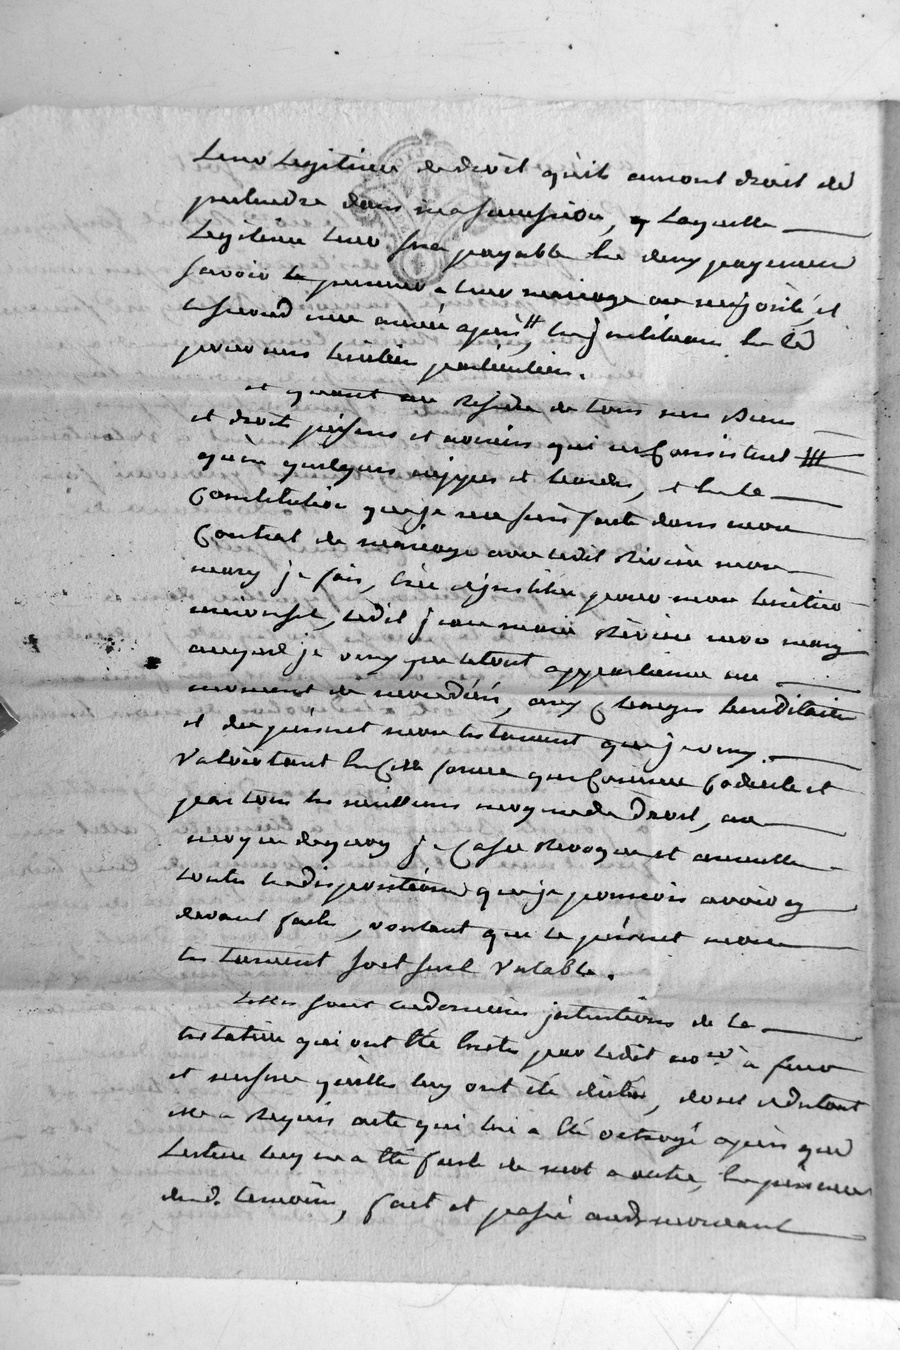 Leur Legitime de droit qu'ils auront droit de
pretendre dans ma sucession, Laquelle
Legitime leur sera payable En deux payemens
savoir le premier a leur mariage ou majorité, et
le second une année après, les jnstituans En Ce
pour mes heritiers particuliers.
et quant au Residu de tous mes Biens
et droits présens et avenirs qui ne Consistent
qu'en quelques nippes et hardes, et En la
Constitution que je me suis faite dans mon
Contrat de mariage avec ledit Rivière mon
mary je fais, crée et jnstitue pour mon heritier
universel, ledit jean marie Rivière mon mary
auquel je veux que le tout appartienne au
moment de mon décés, aux Charges hereditaires
et du présent mon testament que je veux
Valoir tant En Cette forme que Comme Codicile et
par tous les meilleurs moyens de Droit, au
moyen de quoy je Casse Revoque et annulle
toutes les dispositions que je pourrois avoir cy
devant faite, voulant que le présent mon
testament soit seul Valable.
telles sont les dernières jntentions de la
testatrice qui ont été Ecrites par ledit no.re à fur
et mesure qu'elles luy ont été dictées, dont et du tout
elle a Requis acte qui lui a été octroyé après que
Lecture luy en a été faite de mot a autre, En présence
desd. temoins, fait et passé audit